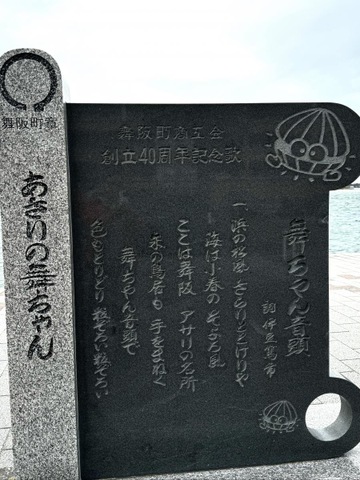 舞阪町章
あさりの舞ちゃん
舞阪町商工会
創立40周年記念歌
舞ちゃん音頭
詞 伊豆篤市
一、浜の松風 さらりとそけりゃ
海は小春の そよろ風
ここは舞阪 アサリの名所
朱の鳥居も 手をまねく
舞ちゃん音頭で
色もとりどり 粒ぞろい粒ぞろい